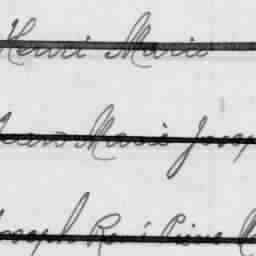 Henri Marie
Marie Josep
Joseph René Pierre